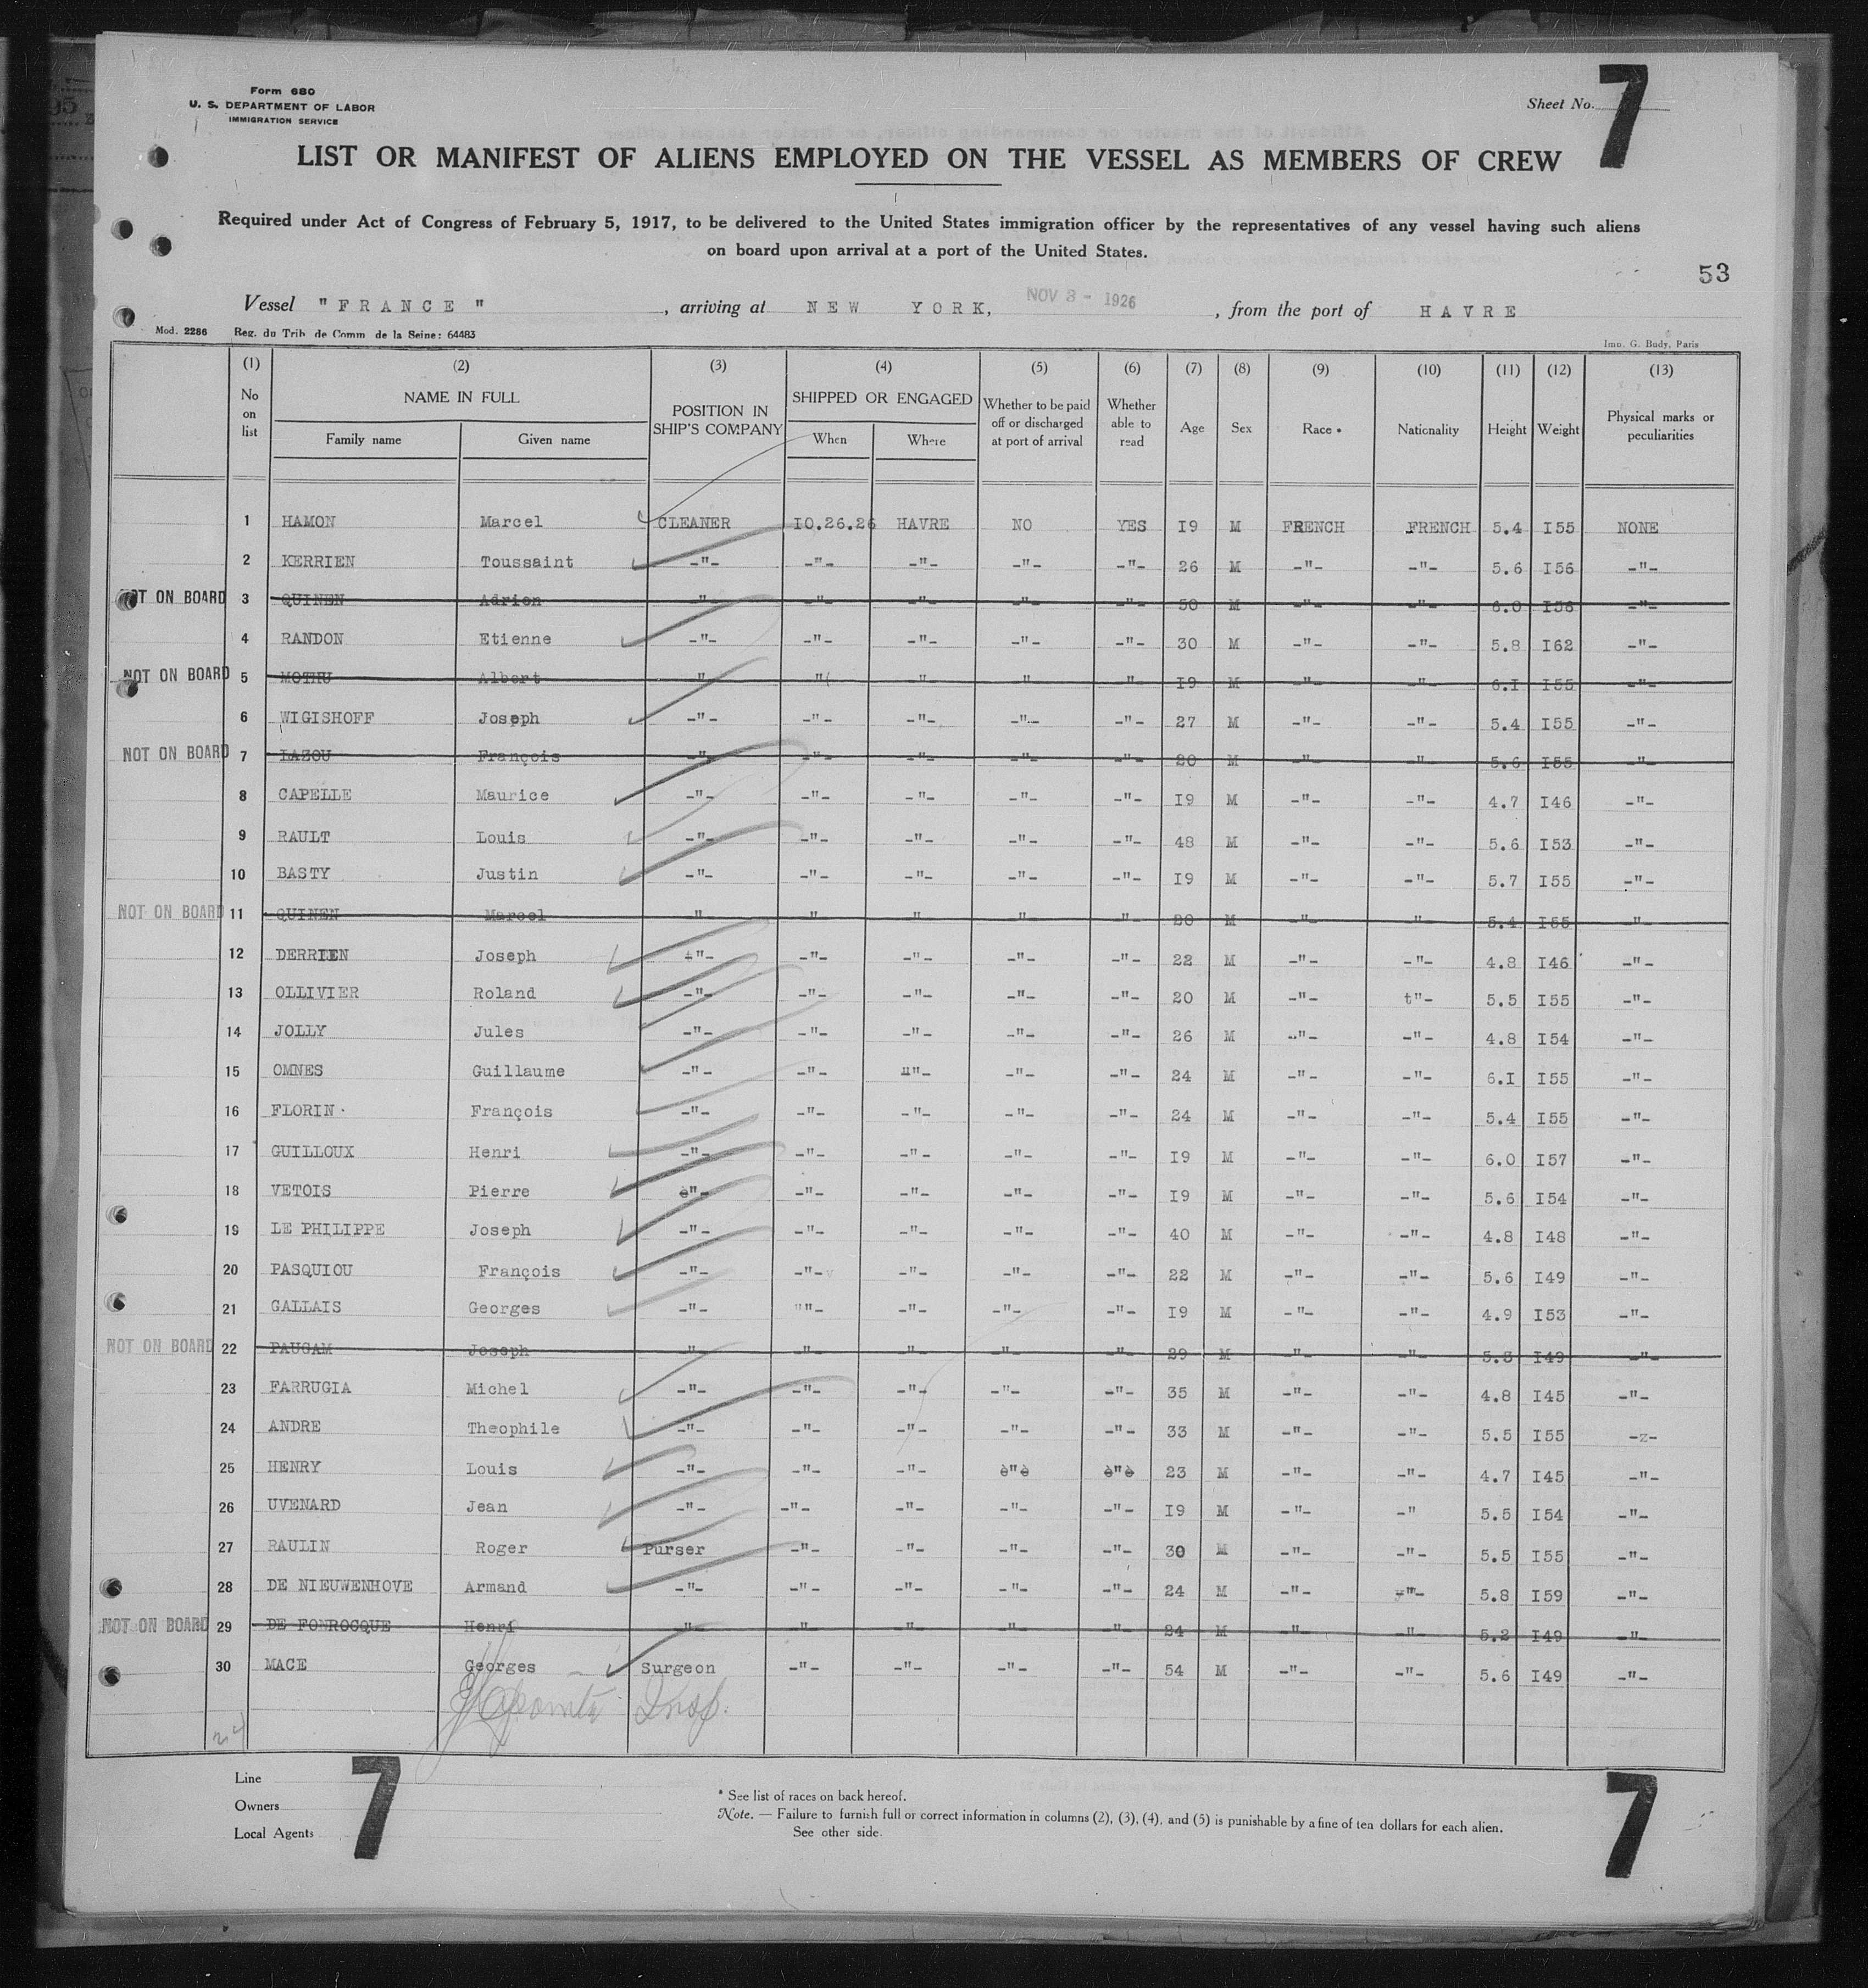 Form 680
U. S. DEPARTMENT OF LABOR
IMMIGRATION SERVICE
Sheet No. 7
LIST OR MANIFEST OF ALIENS EMPLOYED ON THE VESSEL AS MEMBERS OF CREW
Required under Act of Congress of February 5, 1917, to be delivered to the United States immigration officer by the representatives of any vessel having such aliens
on board upon arrival at a port of the United States.
53
Vessel "FRANCE", arriving at NEW YORK, NOV 3 - 1926, from the port of HAVRE
Mod. 2286 Reg. du Trib de Comm de la Seine: 64483 Imp. G. Budy, Paris
(1) (2) (3) (4) (5) (6) (7) (8) (9) (10) (11) (12) (13)
No on list NAME IN FULL Family name Given name POSITION IN SHIP'S COMPANY SHIPPED OR ENGAGED When Where Whether to be paid off or discharged at port of arrival Whether able to read Age Sex Race * Nationality Height Weight Physical marks or peculiarities
1 HAMON Marcel CLEANER 10.26.26 HAVRE NO YES I9 M FRENCH FRENCH 5.4 I55 NONE
2 KERRIEN Toussaint -"- -"- -"- -"- -"- 26 M -"- -"- 5.6 I56 -"-
NOT ON BOARD 3 QUINEN Adrien -"- -"- -"- -"- -"- 50 M -"- -"- 6.0 I58 -"-
4 RANDON Etienne -"- -"- -"- -"- -"- 30 M -"- -"- 5.8 I62 -"-
NOT ON BOARD 5 MOTHU Albert -"- "( -"- -"- -"- I9 M -"- -"- 6.I I55 -"-
6 WIGISHOFF Joseph -"- -"- -"- -"- -"- 27 M -"- -"- 5.4 I55 -"-
NOT ON BOARD 7 LAZOU François -"- -"- -"- -"- -"- 20 M -"- -"- 5.6 I55 -"-
8 CAPELLE Maurice -"- -"- -"- -"- -"- I9 M -"- -"- 4.7 I46 -"-
9 RAULT Louis -"- -"- -"- -"- -"- 48 M -"- -"- 5.6 I53 -"-
10 BASTY Justin -"- -"- -"- -"- -"- I9 M -"- -"- 5.7 I55 -"-
NOT ON BOARD 11 QUINEN Marcel -"- -"- -"- -"- -"- 20 M -"- -"- 5.4 I55 -"-
12 DERRIEN Joseph -"- -"- -"- -"- -"- 22 M -"- -"- 4.8 I46 -"-
13 OLLIVIER Roland -"- -"- -"- -"- -"- 20 M -"- t"- 5.5 I55 -"-
14 JOLLY Jules -"- -"- -"- -"- -"- 26 M -"- -"- 4.8 I54 -"-
15 OMNES Guillaume -"- -"- -"- -"- -"- 24 M -"- -"- 6.I I55 -"-
16 FLORIN François -"- -"- -"- -"- -"- 24 M -"- -"- 5.4 I55 -"-
17 GUILLOUX Henri -"- -"- -"- -"- -"- I9 M -"- -"- 6.0 I57 -"-
18 VETOIS Pierre è"- -"- -"- -"- -"- I9 M -"- -"- 5.6 I54 -"-
19 LE PHILIPPE Joseph -"- -"- -"- -"- -"- 40 M -"- -"- 4.8 I48 -"-
20 PASQUIOU François -"- -"- -"- -"- -"- 22 M -"- -"- 5.6 I49 -"-
21 GALLAIS Georges -"- -"- -"- -"- -"- I9 M -"- -"- 4.9 I53 -"-
NOT ON BOARD 22 PAUGAM Joseph -"- -"- -"- -"- -"- 29 M -"- -"- 5.8 I49 -"-
23 FARRUGIA Michel -"- -"- -"- -"- -"- 35 M -"- -"- 4.8 I45 -"-
24 ANDRE Theophile -"- -"- -"- -"- -"- 33 M -"- -"- 5.5 I55 -z-
25 HENRY Louis -"- -"- -"- è"è è"è 23 M -"- -"- 4.7 I45 -"-
26 UVENARD Jean -"- -"- -"- -"- -"- I9 M -"- -" 5.5 I54 -"-
27 RAULIN Roger Purser -"- -"- -"- -"- 30 M -"- -"- 5.5 I55 -"-
28 DE NIEUWENHOVE Armand -"- -"- -"- -"- -"- 24 M -"- -"- 5.8 I59 -"-
NOT ON BOARD 29 DE FONROCQUE Henri -"- -"- -"- -"- -"- 24 M -"- -"- 5.2 I49 -"-
30 MACE Georges Surgeon -"- -"- -"- -"- 54 M -"- -"- 5.6 I49 -"-
Insp.
Line
Owners
Local Agents
7
* See list of races on back hereof.
Note. — Failure to furnish full or correct information in columns (2), (3), (4), and (5) is punishable by a fine of ten dollars for each alien.
See other side.
7